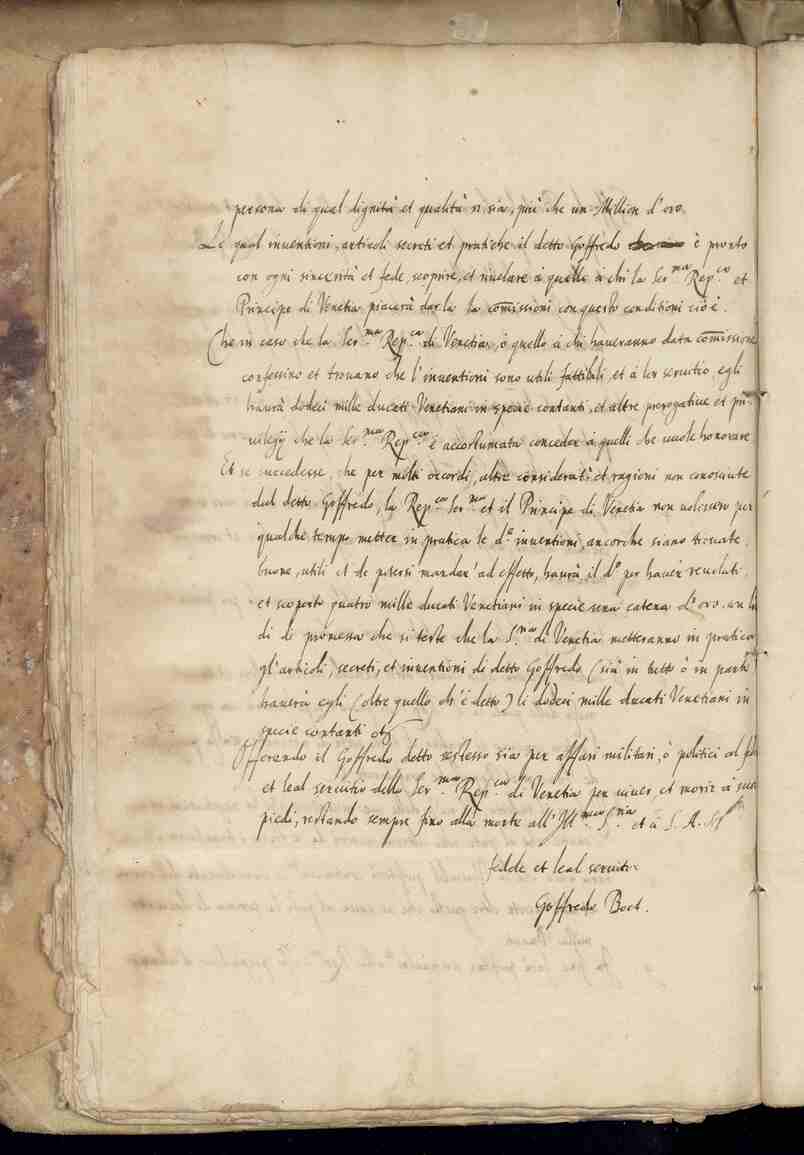 persona di qual dignità et qualità si sia, più che un Million d'oro.
Le qual inventioni, articoli secreti et pratiche il detto Goffredo è pronto
con ogni sincerità et fede, scoprire, et riuelare à quello à chi la Ser.ma Rep.ca et
Principe di Venetia piacerà dar la comissioni con questo conditioni ciò è.
Che in caso che la Ser.ma Rep.ca di Venetia, ò quello à chi haueranno data comissione
confessino et trouano che l'inuentioni sono utili fattibili, et à lor seruitio egli
haurà dodeci mille ducati Venetiani in specie contanti, et altre prerogatiue et pri-
uilegij che la Ser.ma Rep.ca è accostumata conceder à quelli che uuole honorare
Et se succedesse, che per molti occordi, altre considerati et ragioni non conosciute
dal detto Goffredo, la Rep.ca Ser.ma et il Principe di Venetia non uolessero per
qualche tempo metter in pratica le d.e inuentioni, ancorche siano trouate
buone, utili et de potersi mandar' ad effetto, haurà il d.o per hauer reuelati
et scoperto quatro mille ducati Venetiani in specie una catena d'oro. un
di di promessa che si teste che la S.ria di Venetia metteranno in pratica
gl'articoli, secreti, et inuentioni di detto Goffredo (sia in tutto ò in parti
hauerà egli (oltre quello ch'è detto) li dodeci mille ducati Venetiani in
specie contanti
Offerando il Goffredo detto sestesso sia per affari militari, ò politici al
et leal seruitio dello Ser.ma Rep.ca di Venetia per uiuer, et morir à suoi
piedi, restando sempre fino alla morte all' Ill.ma S.ria et à S. A. S.
fedele et leal seruitor
Goffredo Boot.